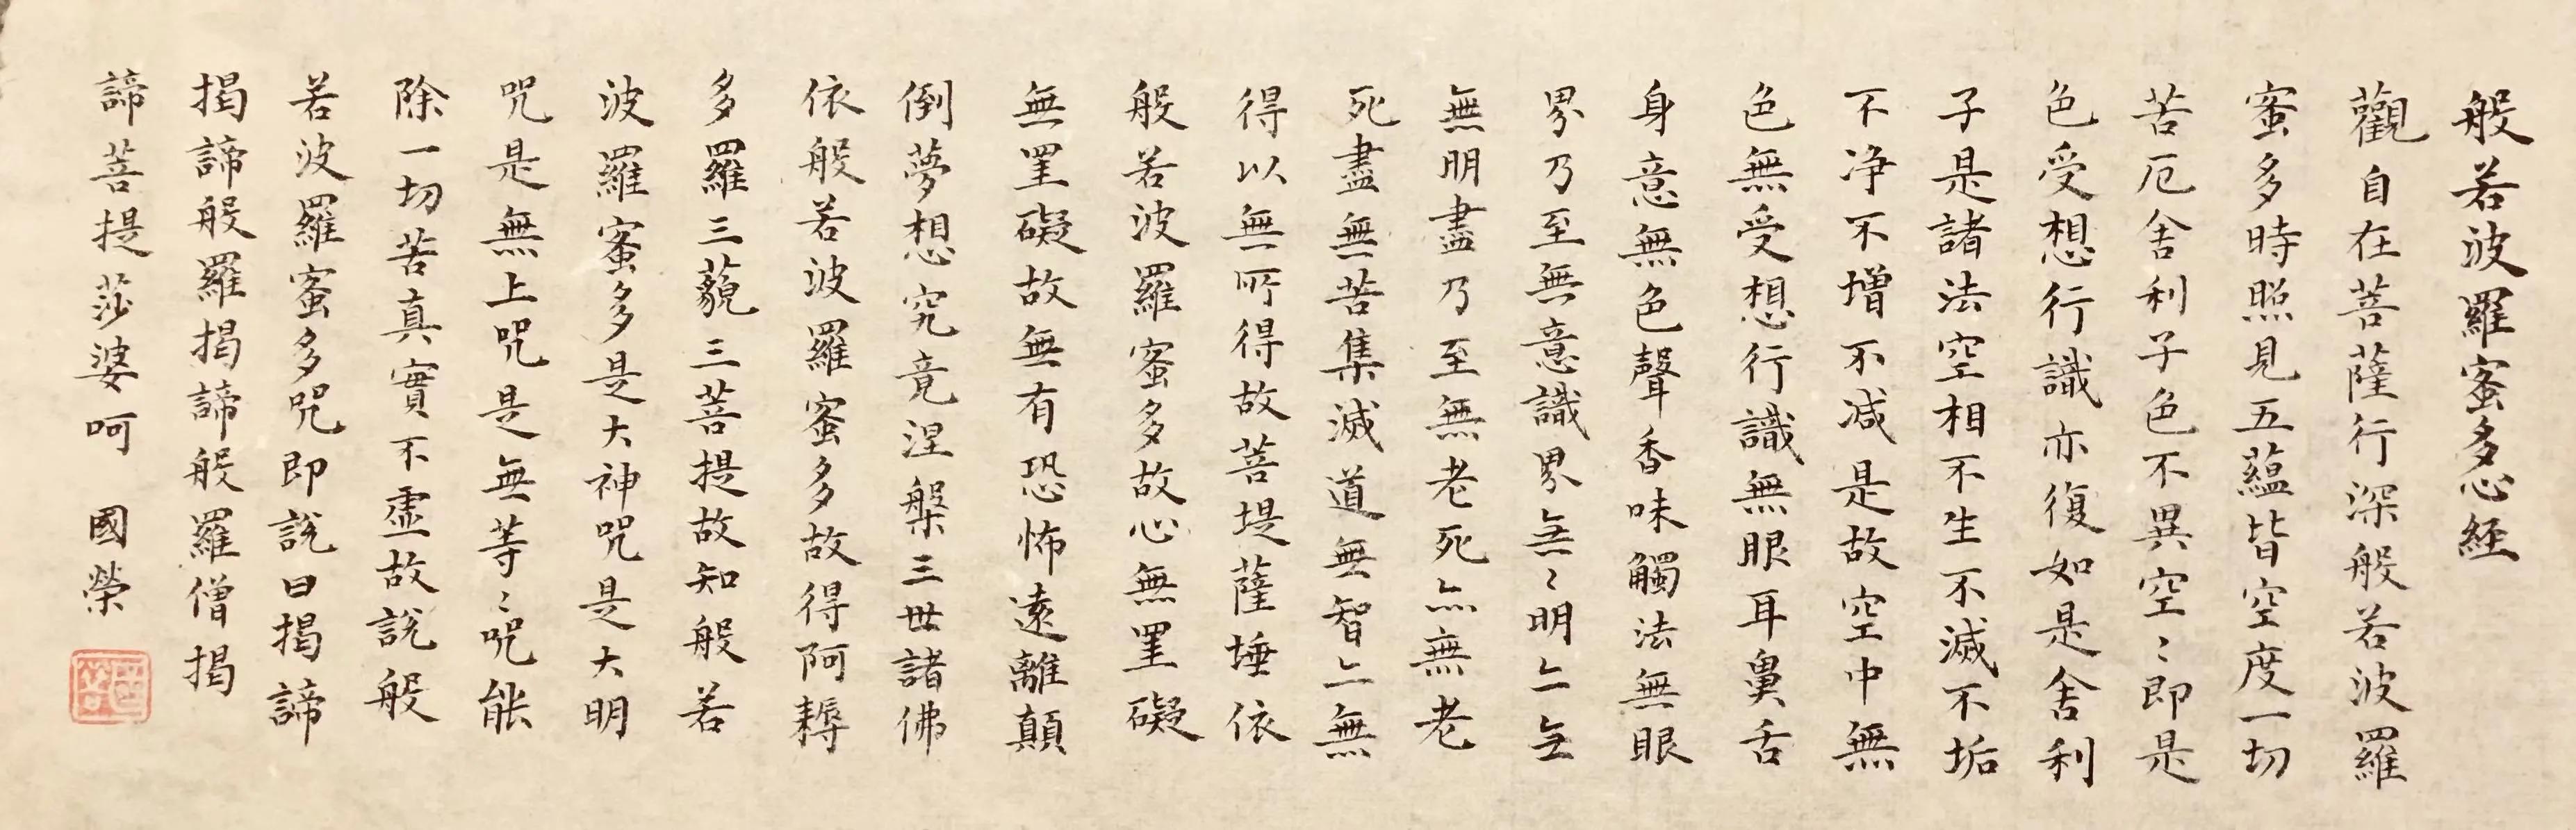 般若波羅蜜多心経
觀自在菩薩行深般若波羅
蜜多時照見五蘊皆空度一切
苦厄舍利子色不異空〻即是
色受想行識亦復如是舍利
子是諸法空相不生不滅不垢
不净不增不减是故空中無
色無受想行識無眼耳鼻舌
身意無色聲香味觸法無眼
界乃至無意識界無〻明亠无
無明盡乃至無老死亦無老
死盡無苦集滅道無智亠無
得以無所得故菩堤薩埵依
般若波羅蜜多故心無罣礙
無罣礙故無有恐怖遠離顛
倒夢想究竟涅槃三世諸佛
依般若波羅蜜多故得阿耨
多羅三藐三菩提故知般若
波羅蜜多是大神咒是大明
咒是無上咒是無等〻咒能
除一切苦真實不虛故說般
若波羅蜜多咒即說曰揭諦
揭諦般羅揭諦般羅僧揭
諦菩提莎婆呵 國榮